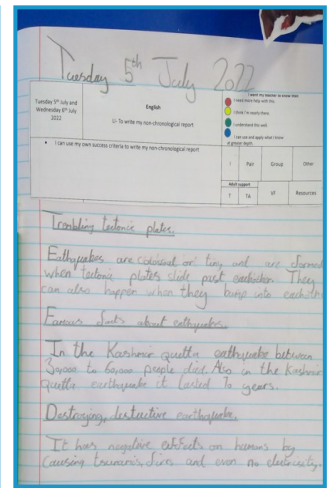 Tuesday 5th July 2022
Tuesday 5th July and
Wednesday 6th July
2022
English
LI- To write my non-chronological report
I want my teacher to know that:
I need more help with this.
I think I'm nearly there.
I understand this well.
I can use and apply what I know
at greater depth.
• I can use my own success criteria to write my non-chronological report
I Pair Group Other
Adult support
T TA VF Resources
Trembling tectonic plates.
Eathquakes are colossal or tiny and are formed
when tectonic plates slide past eachother. They
can also happen when they bump into eachother
Famous facts about eathquakes.
In the Kashmir quetta eathquake between
30,000 to 60,000 people died. Also in the Kashmir
quetta earthquake it lasted 70 years.
Destroying, destructive earthquake.
It has negative on humans by
causing tsunamis, fires and even no electricity.